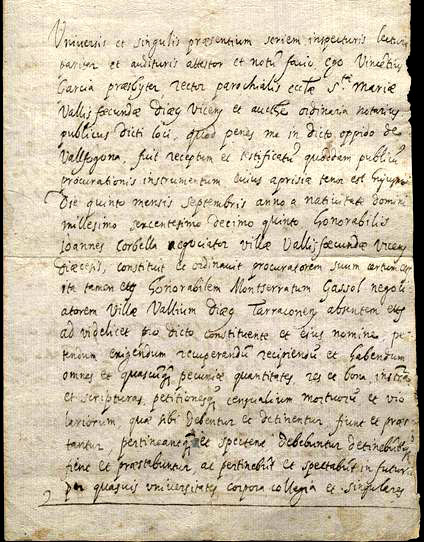 Universis et singulis præsentium seriem inspecturis lecturis
pariter et audituris attestor et notũ facio ego Vincẽtius
Garcia præsbyter rector parochialis ecclæ Stæ Mariæ
Vallis fæcundæ diæcs Vicens et aucthe ordinaria notarius
publicus dicti loci, quod penes me in dicto oppido de
Vallfogona, fuit receptum et testificatũ quoddam publicũ
procurationis instrumentum cuius aprisiæ tenor est huiusmodi
Die quinto mensis septembris anno a natiuitate domini
millesimo sexcentesimo decimo quinto Honorabilis
Ioannes Corbella negociator villæ Vallis fæcundæ Vicens
diæcesis, constituit et ordinauit procuratorem suum certum
ita tamen Honorabilem Montserratum Gassol negoti
atorem Villæ Vallium diæcs Tarraconen absentem
ad videlicet pro dicto constituente et eius nomine, pe
tendum exigendum recuperandũ recipiendũ et habendum
omnes et quascunq pecuniæ quantitates, res et bona,
et scripturas, petitionesq censualium mortuorũ et vio
lariorum, quæ sibi debentur et detinentur, fiunt et præs
tantur, pertineantq et spectent debebuntur detinebũt
fient et præstabuntur, ac pertinebũt et spectabũt in futurũ
per quasuis vniuersitates corpora collegia et singulares